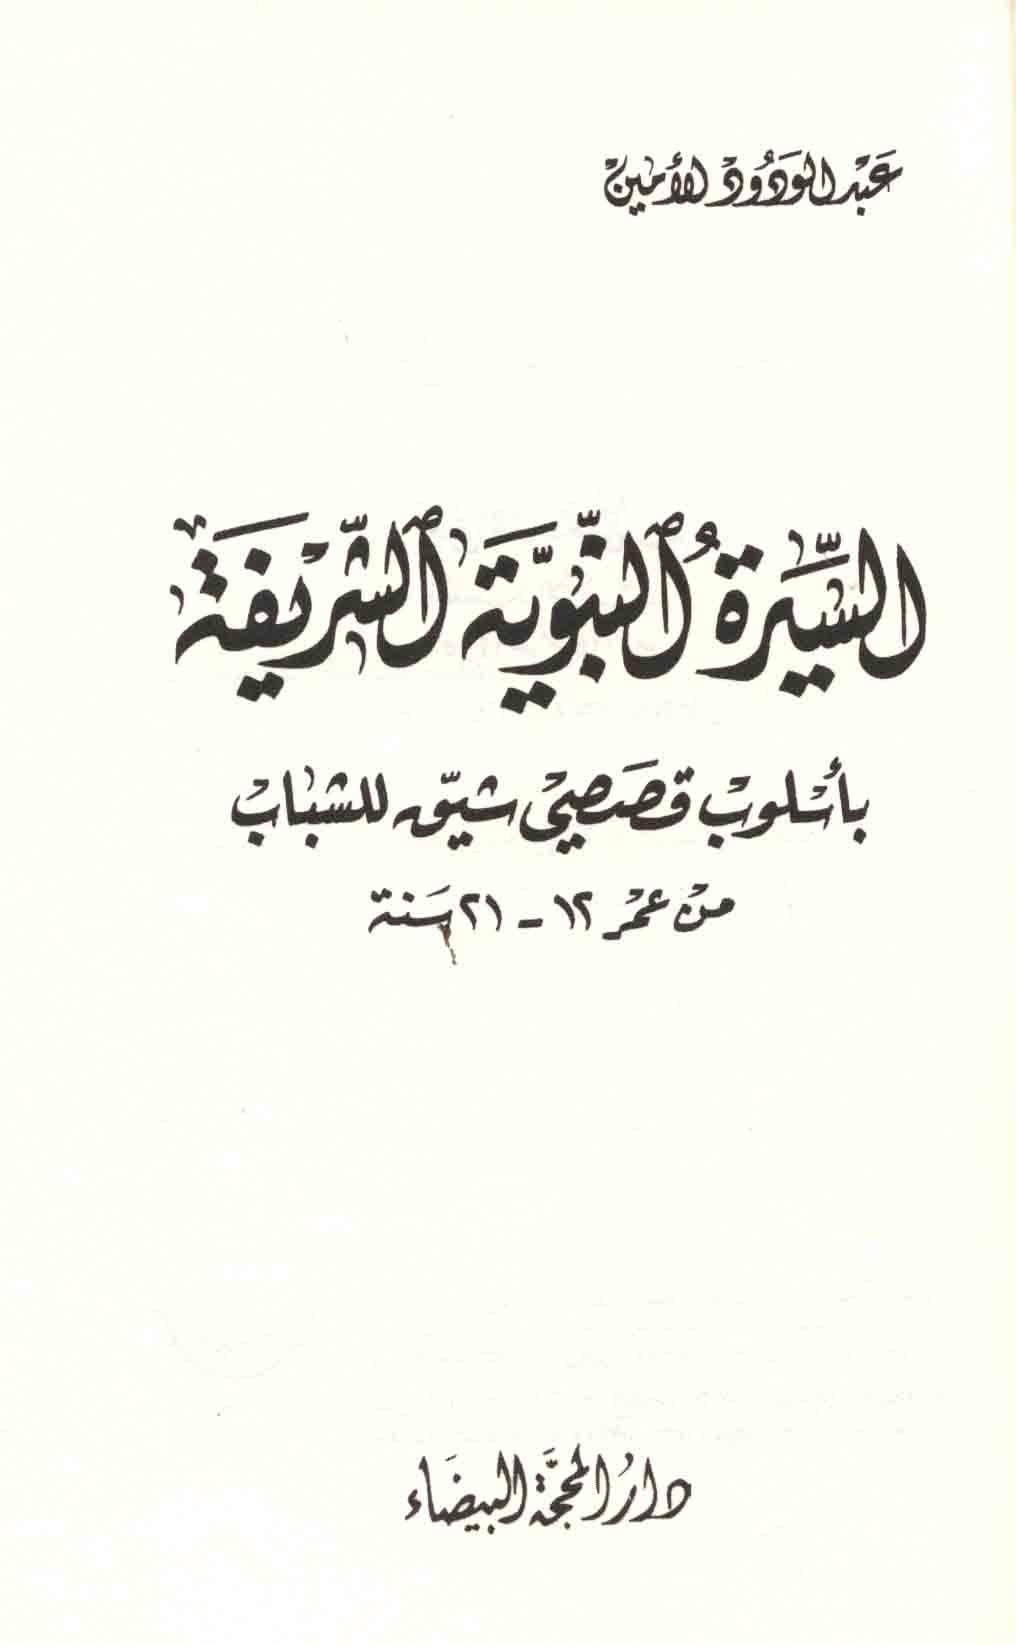 عَبْد الوَدُودْ الأمين
السِّيَرةُ ٱلنّبَويَّة ٱلشّريفَة
بأسْلوبْ قصَصيْ شيّق للشبَابْ
منْ عمْر ١٢ - ٢١ سَنة
دارُ المحجَّة البيضَاء